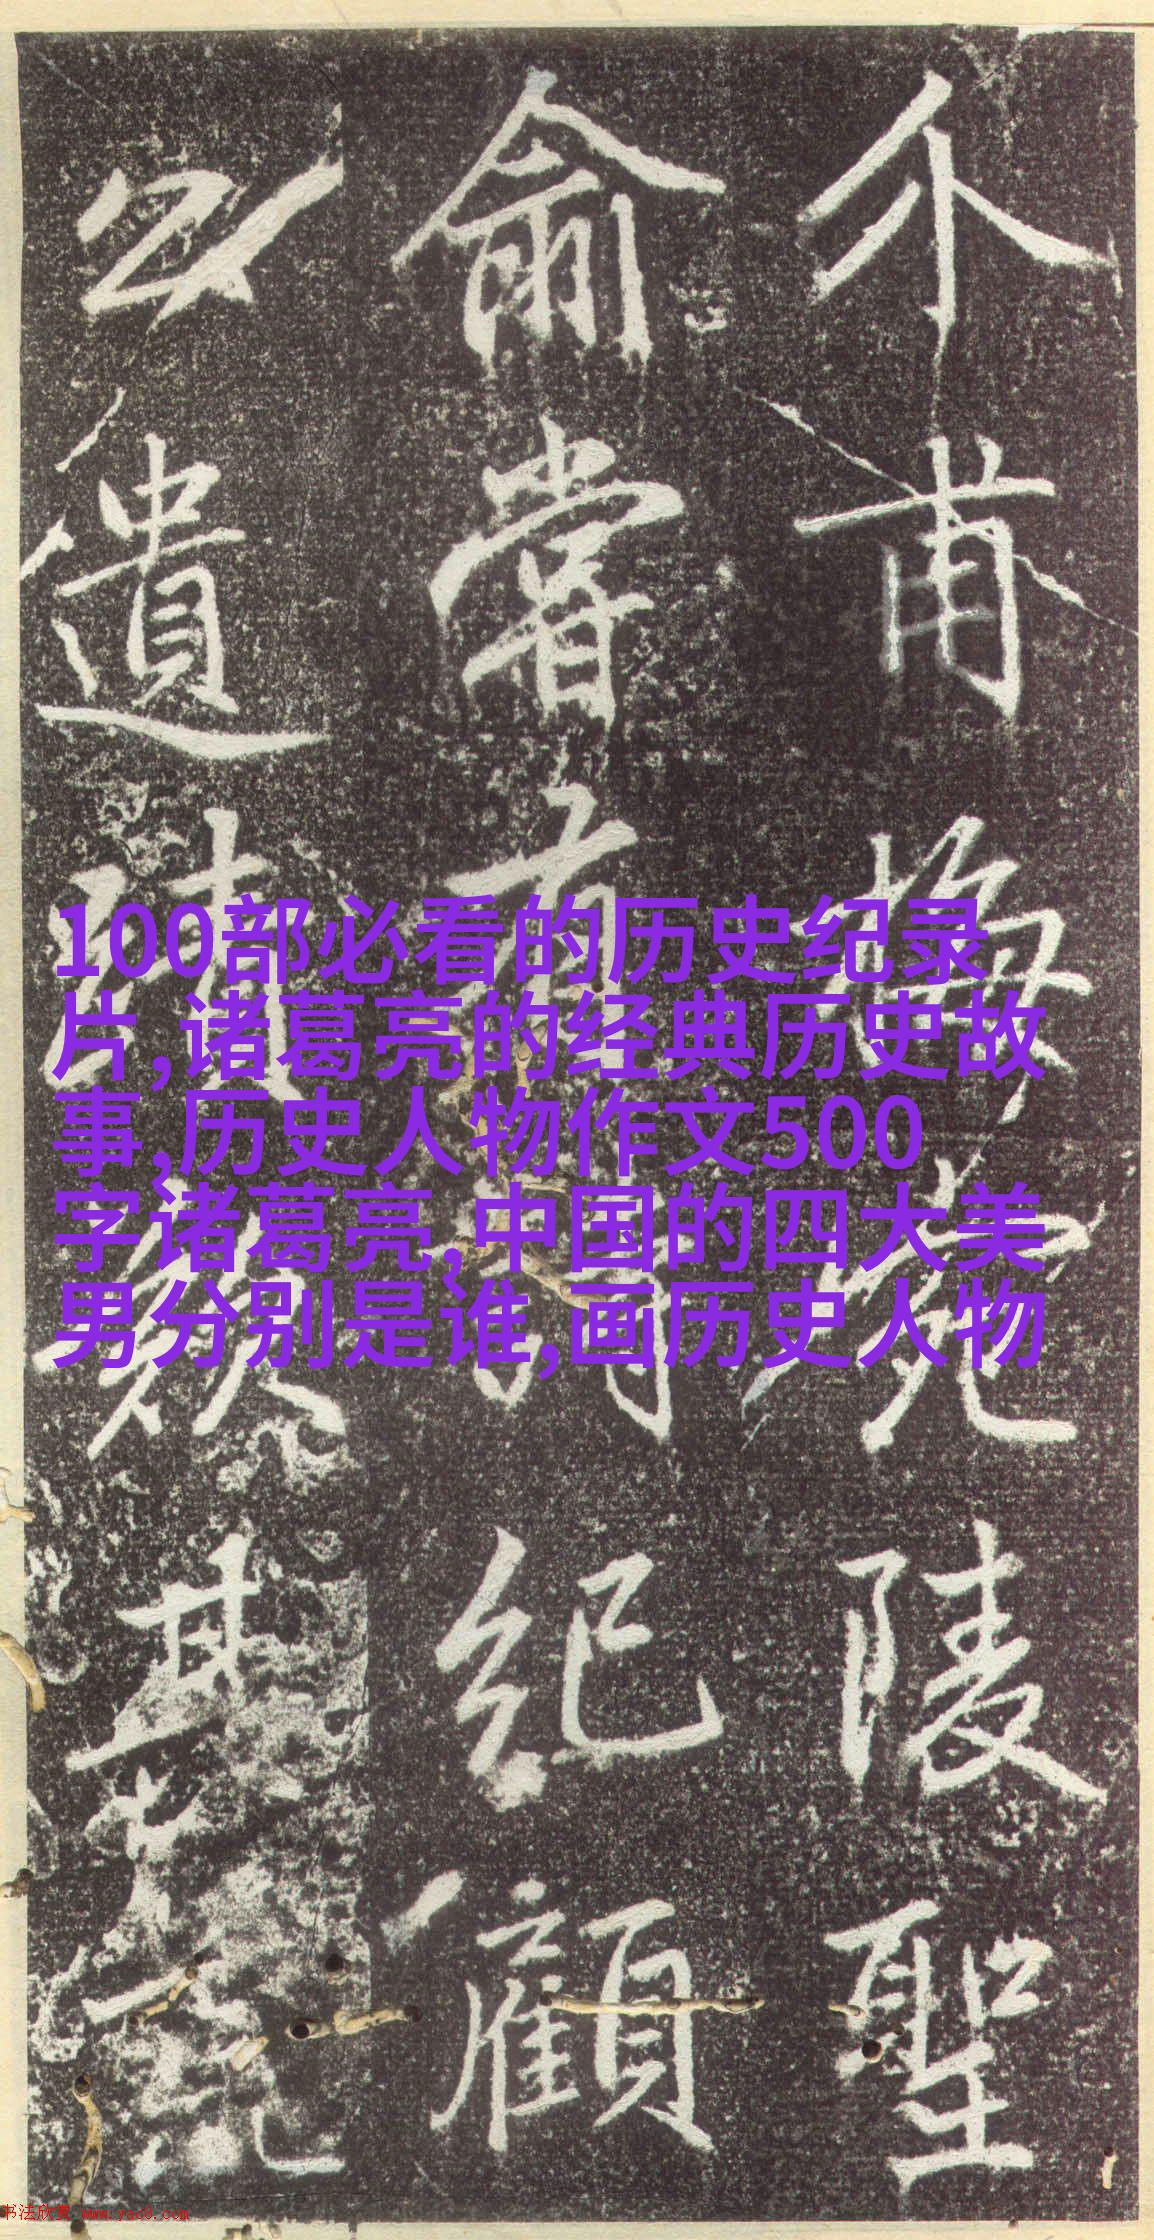 介甫梅宛陵聖
俞嘗有詩紀顧
公遺蹟數其
100部必看的历史纪录
片,诸葛亮的经典历史故
事,历史人物作文500
字诸葛亮,中国的四大美
男分别是谁,画历史人物
书法欣赏 www.yac8.com